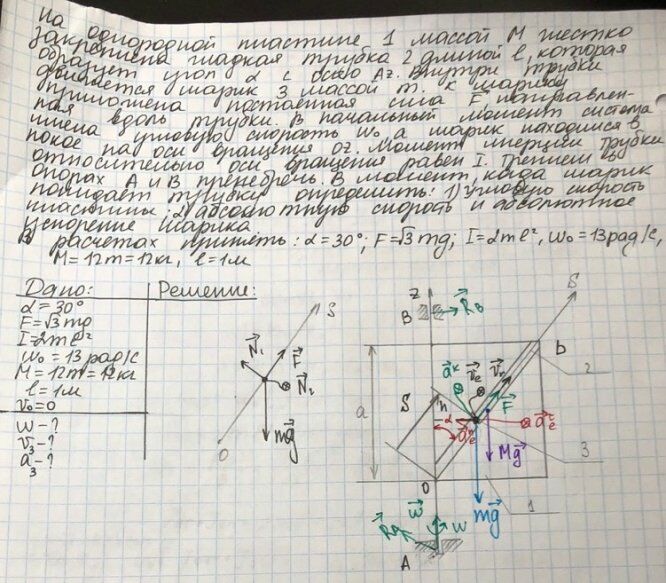 На однородной пластине 1 массой M жестко
закреплена гладкая трубка 2 длиной l, которая
образует угол α с осью Az. Внутри трубки
движется шарик 3 массой m. К шарику
приложена постоянная сила F, направлен-
ная вдоль трубки. В начальный момент система
имела угловую скорость ω₀, а шарик находился в
покое на оси вращения Oz. Момент инерции трубки
относительно оси вращения равен I. Трением в
опорах A и B пренебречь. В момент, когда шарик
покидает трубку определить: 1) угловую скорость
пластины; 2) абсолютную скорость и абсолютное
ускорение шарика
В расчетах принять: α = 30°; F = √3 mg; I = 2ml², ω₀ = 13 рад/с,
M = 12m = 12кг, l = 1м
Дано: Решение:
α = 30°
F = √3 mg
I = 2ml²
ω₀ = 13 рад/с
M = 12m = 12кг
l = 1м
v₀ = 0
ω - ?
v₃ - ?
a₃ - ?
S
N₁
F
N₂
mg
O
z
S
B
R_B
b
a
S
n
α
a^k
v_e
v_r
F
2
3
1
Mg
mg
O
ω
ω
A